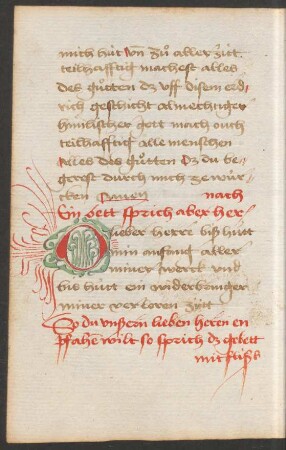 mich hüt vn̄ zů aller zitt
teilhafftig machest alles
des gůtten dz vff disem erd
rich geschicht almechtiger
himlischer gott mach ouch
teilhafftig alle menschen
alles des gůtten dz du be
gerest durch mich ze wür
cken Amen nach
Ein gebett sprich aber her
O lieber herre biß hütt
min anfang aller
miner werck vnd
bis hütt ein widerbringer
miner verloren zÿtt
So du vnßern lieben heren en
pfahe wilt so sprich dz gebett
mit flÿß